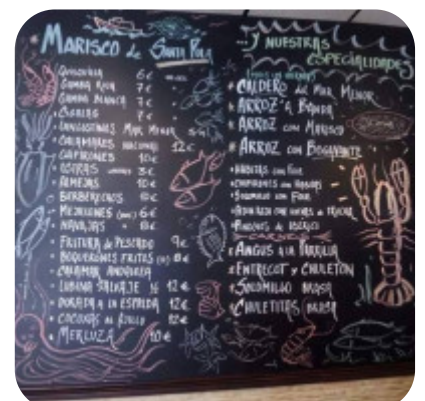 MARISCO de SANTA POLA
QUISQUILLA 6€
GAMBA ROJA 7€
GAMBA BLANCA 7€
CIGALAS 7€
LANGOSTINOS MAR MENOR
CALAMARES NACIONAL 12€
CHIPIRONES 10€
OSTRAS 3€
ALMEJAS 10€
BERBERECHOS 10€
MEJILLONES 6€
NAVAJAS
FRITURA de PESCADO 9€
BOQUERONES FRITOS 8€
CALAMAR ANDALUZA
LUBINA SALVAJE 12€
DORADA A LA ESPALDA 12€
COCOCHAS AL PILPIL 12€
MERLUZA 10€
...Y NUESTRAS
ESPECIALIDADES
CALDERO del MAR MENOR
ARROZ A BANDA
ARROZ con MARISCO
ARROZ con BOGAVANTE
HABITAS con FOIE
CHIPIRONES con HABITAS
SOLOMILLO con FOIE
PINCHOS DE IBÉRICO
CARNES
ANGUS A LA PARRILLA
ENTRECOT y CHULETON
SOLOMILLO BRASA
CHULETITAS BRASA